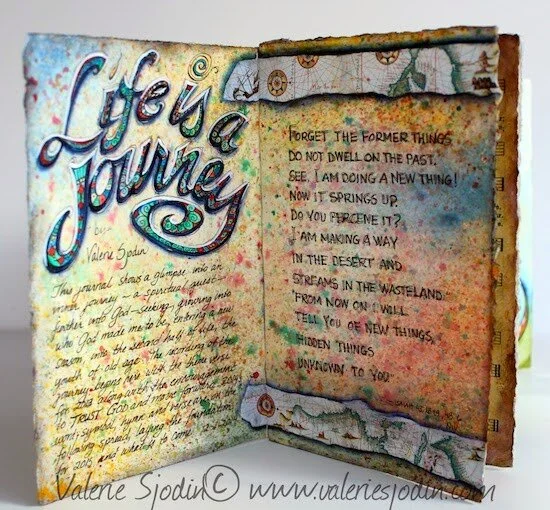 Life is a
journey
by
Valerie Sjodin
This journal shows a glimpse into an
inner journey - a spiritual quest -
further into God - seeking, growing into
who God made me to be, entering a new
season, into the second half of life, the
youth of old age. The recording of the
journey begins with the Bible verse
for 2014 being
to TRUST GOD and move forward. 2014's
word, symbol, hymn and
following spread laying the foundation
for 2015 and
FORGET THE FORMER THINGS.
DO NOT DWELL ON THE PAST.
SEE, I AM DOING A NEW THING!
NOW IT SPRINGS UP.
DO YOU PERCEIVE IT?
I AM MAKING A WAY
IN THE DESERT AND
STREAMS IN THE WASTELAND.
"FROM NOW ON I WILL
TELL YOU OF NEW THINGS,
HIDDEN THINGS
UNKNOWN TO YOU
Valerie Sjodin© www.valeriesjodin.com